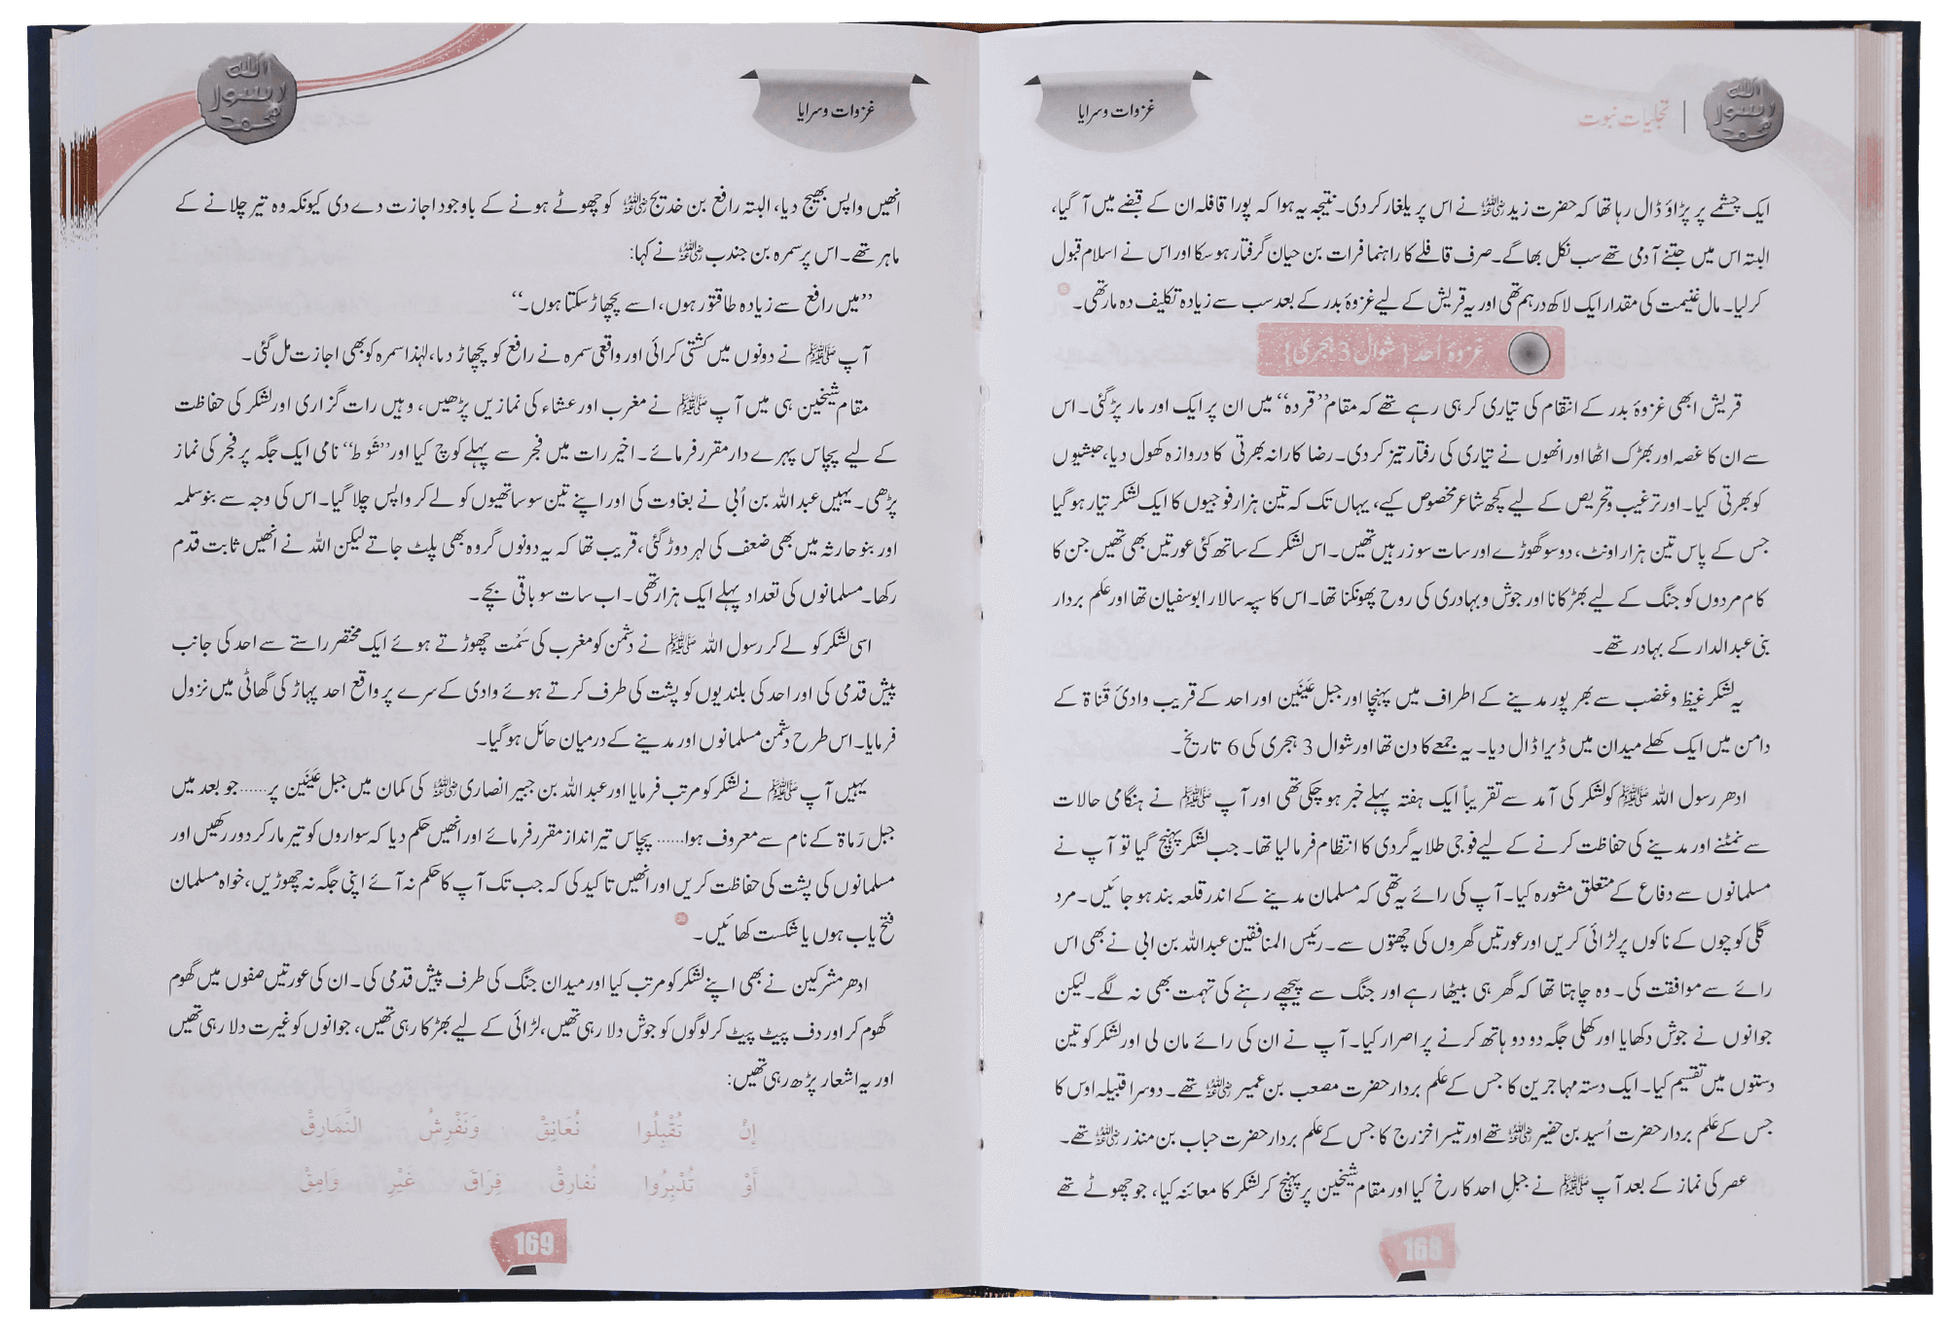 تجلیات نبوت
غزوات و سرایا
ایک چشمے پر پڑاؤ ڈال رہا تھا کہ حضرت زید رضی اللہ عنہ نے اس پر یلغار کر دی۔ نتیجہ یہ ہوا کہ پورا قافلہ ان کے قبضے میں آ گیا،
البتہ اس میں جتنے آدمی تھے سب نکل بھاگے۔ صرف قافلے کا راہنما فرات بن حیان گرفتار ہو سکا اور اس نے اسلام قبول
کر لیا۔ مال غنیمت کی مقدار ایک لاکھ درہم تھی اور یہ قریش کے لیے غزوۂ بدر کے بعد سب سے زیادہ تکلیف دہ مار تھی۔
غزوۂ اُحد { شوال 3 ہجری }
قریش ابھی غزوۂ بدر کے انتقام کی تیاری کر ہی رہے تھے کہ مقام ”قردہ“ میں ان پر ایک اور مار پڑ گئی۔ اس
سے ان کا غصہ اور بھڑک اٹھا اور انھوں نے تیاری کی رفتار تیز کر دی۔ رضا کارانہ بھرتی کا دروازہ کھول دیا، حبشیوں
کو بھرتی کیا۔ اور ترغیب و تحریص کے لیے کچھ شاعر مخصوص کیے، یہاں تک کہ تین ہزار فوجیوں کا ایک لشکر تیار ہو گیا
جس کے پاس تین ہزار اونٹ، دو سو گھوڑے اور سات سو زرہیں تھیں۔ اس لشکر کے ساتھ کئی عورتیں بھی تھیں جن کا
کام مردوں کو جنگ کے لیے بھڑکانا اور جوش و بہادری کی روح پھونکنا تھا۔ اس کا سپہ سالار ابوسفیان تھا اور عَلم بردار
بنی عبدالدار کے بہادر تھے۔
یہ لشکر غیظ و غضب سے بھر پور مدینے کے اطراف میں پہنچا اور جبل عَیْنَین اور احد کے قریب وادیٔ قَناۃ کے
دامن میں ایک کھلے میدان میں ڈیرا ڈال دیا۔ یہ جمعے کا دن تھا اور شوال 3 ہجری کی 6 تاریخ۔
ادھر رسول اللہ ﷺ کو لشکر کی آمد سے تقریباً ایک ہفتہ پہلے خبر ہو چکی تھی اور آپ ﷺ نے ہنگامی حالات
سے نمٹنے اور مدینے کی حفاظت کرنے کے لیے فوجی طلایہ گردی کا انتظام فرما لیا تھا۔ جب لشکر پہنچ گیا تو آپ نے
مسلمانوں سے دفاع کے متعلق مشورہ کیا۔ آپ کی رائے یہ تھی کہ مسلمان مدینے کے اندر قلعہ بند ہو جائیں۔ مرد
گلی کوچوں کے ناکوں پر لڑائی کریں اور عورتیں گھروں کی چھتوں سے۔ رئیس المنافقین عبداللہ بن ابی نے بھی اس
رائے سے موافقت کی۔ وہ چاہتا تھا کہ گھر ہی بیٹھا رہے اور جنگ سے پیچھے رہنے کی تہمت بھی نہ لگے۔ لیکن
جوانوں نے جوش دکھایا اور کھلی جگہ دو دو ہاتھ کرنے پر اصرار کیا۔ آپ نے ان کی رائے مان لی اور لشکر کو تین
دستوں میں تقسیم کیا۔ ایک دستہ مہاجرین کا جس کے عَلم بردار حضرت مصعب بن عمیر رضی اللہ عنہ تھے۔ دوسرا قبیلہ اوس کا
جس کے عَلم بردار حضرت اُسید بن حضیر رضی اللہ عنہ تھے اور تیسرا خزرج کا جس کے عَلم بردار حضرت حباب بن منذر رضی اللہ عنہ تھے۔
عصر کی نماز کے بعد آپ ﷺ نے جبلِ احد کا رخ کیا اور مقام شیخین پر پہنچ کر لشکر کا معائنہ کیا، جو چھوٹے تھے
168
غزوات و سرایا
انھیں واپس بھیج دیا، البتہ رافع بن خدیج رضی اللہ عنہ کو چھوٹے ہونے کے باوجود اجازت دے دی کیونکہ وہ تیر چلانے کے
ماہر تھے۔ اس پر سمرہ بن جندب رضی اللہ عنہ نے کہا:
”میں رافع سے زیادہ طاقتور ہوں، اسے پچھاڑ سکتا ہوں۔“
آپ ﷺ نے دونوں میں کشتی کرائی اور واقعی سمرہ نے رافع کو پچھاڑ دیا، لہٰذا سمرہ کو بھی اجازت مل گئی۔
مقام شیخین ہی میں آپ ﷺ نے مغرب اور عشاء کی نمازیں پڑھیں، وہیں رات گزاری اور لشکر کی حفاظت
کے لیے پچاس پہرے دار مقرر فرمائے۔ اخیر رات میں فجر سے پہلے کوچ کیا اور ”شَوط“ نامی ایک جگہ پر فجر کی نماز
پڑھی۔ یہیں عبداللہ بن اُبی نے بغاوت کی اور اپنے تین سو ساتھیوں کو لے کر واپس چلا گیا۔ اس کی وجہ سے بنو سلمہ
اور بنو حارثہ میں بھی ضعف کی لہر دوڑ گئی، قریب تھا کہ یہ دونوں گروہ بھی پلٹ جاتے لیکن اللہ نے انھیں ثابت قدم
رکھا۔ مسلمانوں کی تعداد پہلے ایک ہزار تھی۔ اب سات سو باقی بچے۔
اسی لشکر کو لے کر رسول اللہ ﷺ نے دشمن کو مغرب کی سَمْت چھوڑتے ہوئے ایک مختصر راستے سے احد کی جانب
پیش قدمی کی اور احد کی بلندیوں کو پشت کی طرف کرتے ہوئے وادی کے سرے پر واقع احد پہاڑ کی گھاٹی میں نزول
فرمایا۔ اس طرح دشمن مسلمانوں اور مدینے کے درمیان حائل ہو گیا۔
یہیں آپ ﷺ نے لشکر کو مرتب فرمایا اور عبداللہ بن جبیر انصاری رضی اللہ عنہ کی کمان میں جبل عَیْنَین پر...... جو بعد میں
جبل رَماۃ کے نام سے معروف ہوا...... پچاس تیر انداز مقرر فرمائے اور انھیں حکم دیا کہ سواروں کو تیر مار کر دور رکھیں اور
مسلمانوں کی پشت کی حفاظت کریں اور انھیں تاکید کی کہ جب تک آپ کا حکم نہ آئے اپنی جگہ نہ چھوڑیں، خواہ مسلمان
فتح یاب ہوں یا شکست کھائیں۔
ادھر مشرکین نے بھی اپنے لشکر کو مرتب کیا اور میدان جنگ کی طرف پیش قدمی کی۔ ان کی عورتیں صفوں میں گھوم
گھوم کر اور دف پیٹ پیٹ کر لوگوں کو جوش دلا رہی تھیں، لڑائی کے لیے بھڑکا رہی تھیں، جوانوں کو غیرت دلا رہی تھیں
اور یہ اشعار پڑھ رہی تھیں:
إِنْ تُقْبِلُوا نُعَانِقْ وَنَفْرِشُ النَّمَارِقْ
أَوْ تُدْبِرُوا نُفَارِقْ فِرَاقَ غَيْرِ وَامِقْ
169